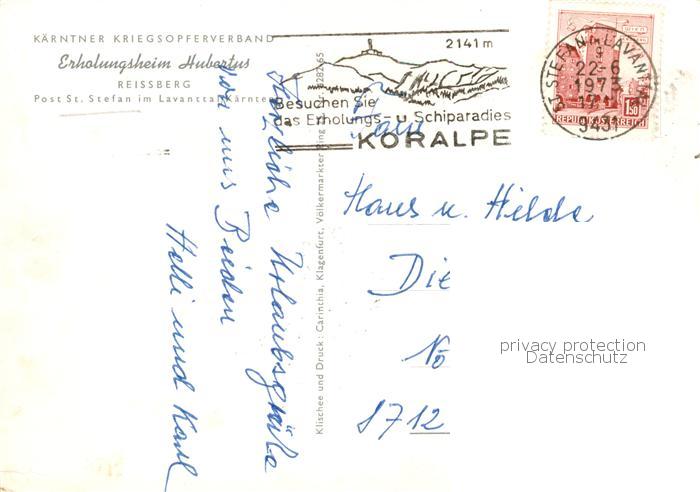 KÄRNTNER KRIEGSOPFERVERBAND
Erholungsheim Hubertus
REISSBERG
Post St. Stefan im Lavanttal, Kärnten
2141 m
Besuchen Sie
das Erholungs- u. Schiparadies
KORALPE
ST. STEFAN IM LAVANTTAL
22-6
1973
9431
1.50
REPUBLIK ÖSTERREICH
Herzliche Urlaubsgrüße
von uns Beiden
Helli und Karl
Klischee und Druck: Carinthia, Klagenfurt, Völkermarkter Ring
Fam
Hans u. Hilde
Die
No
8712
privacy protection
Datenschutz